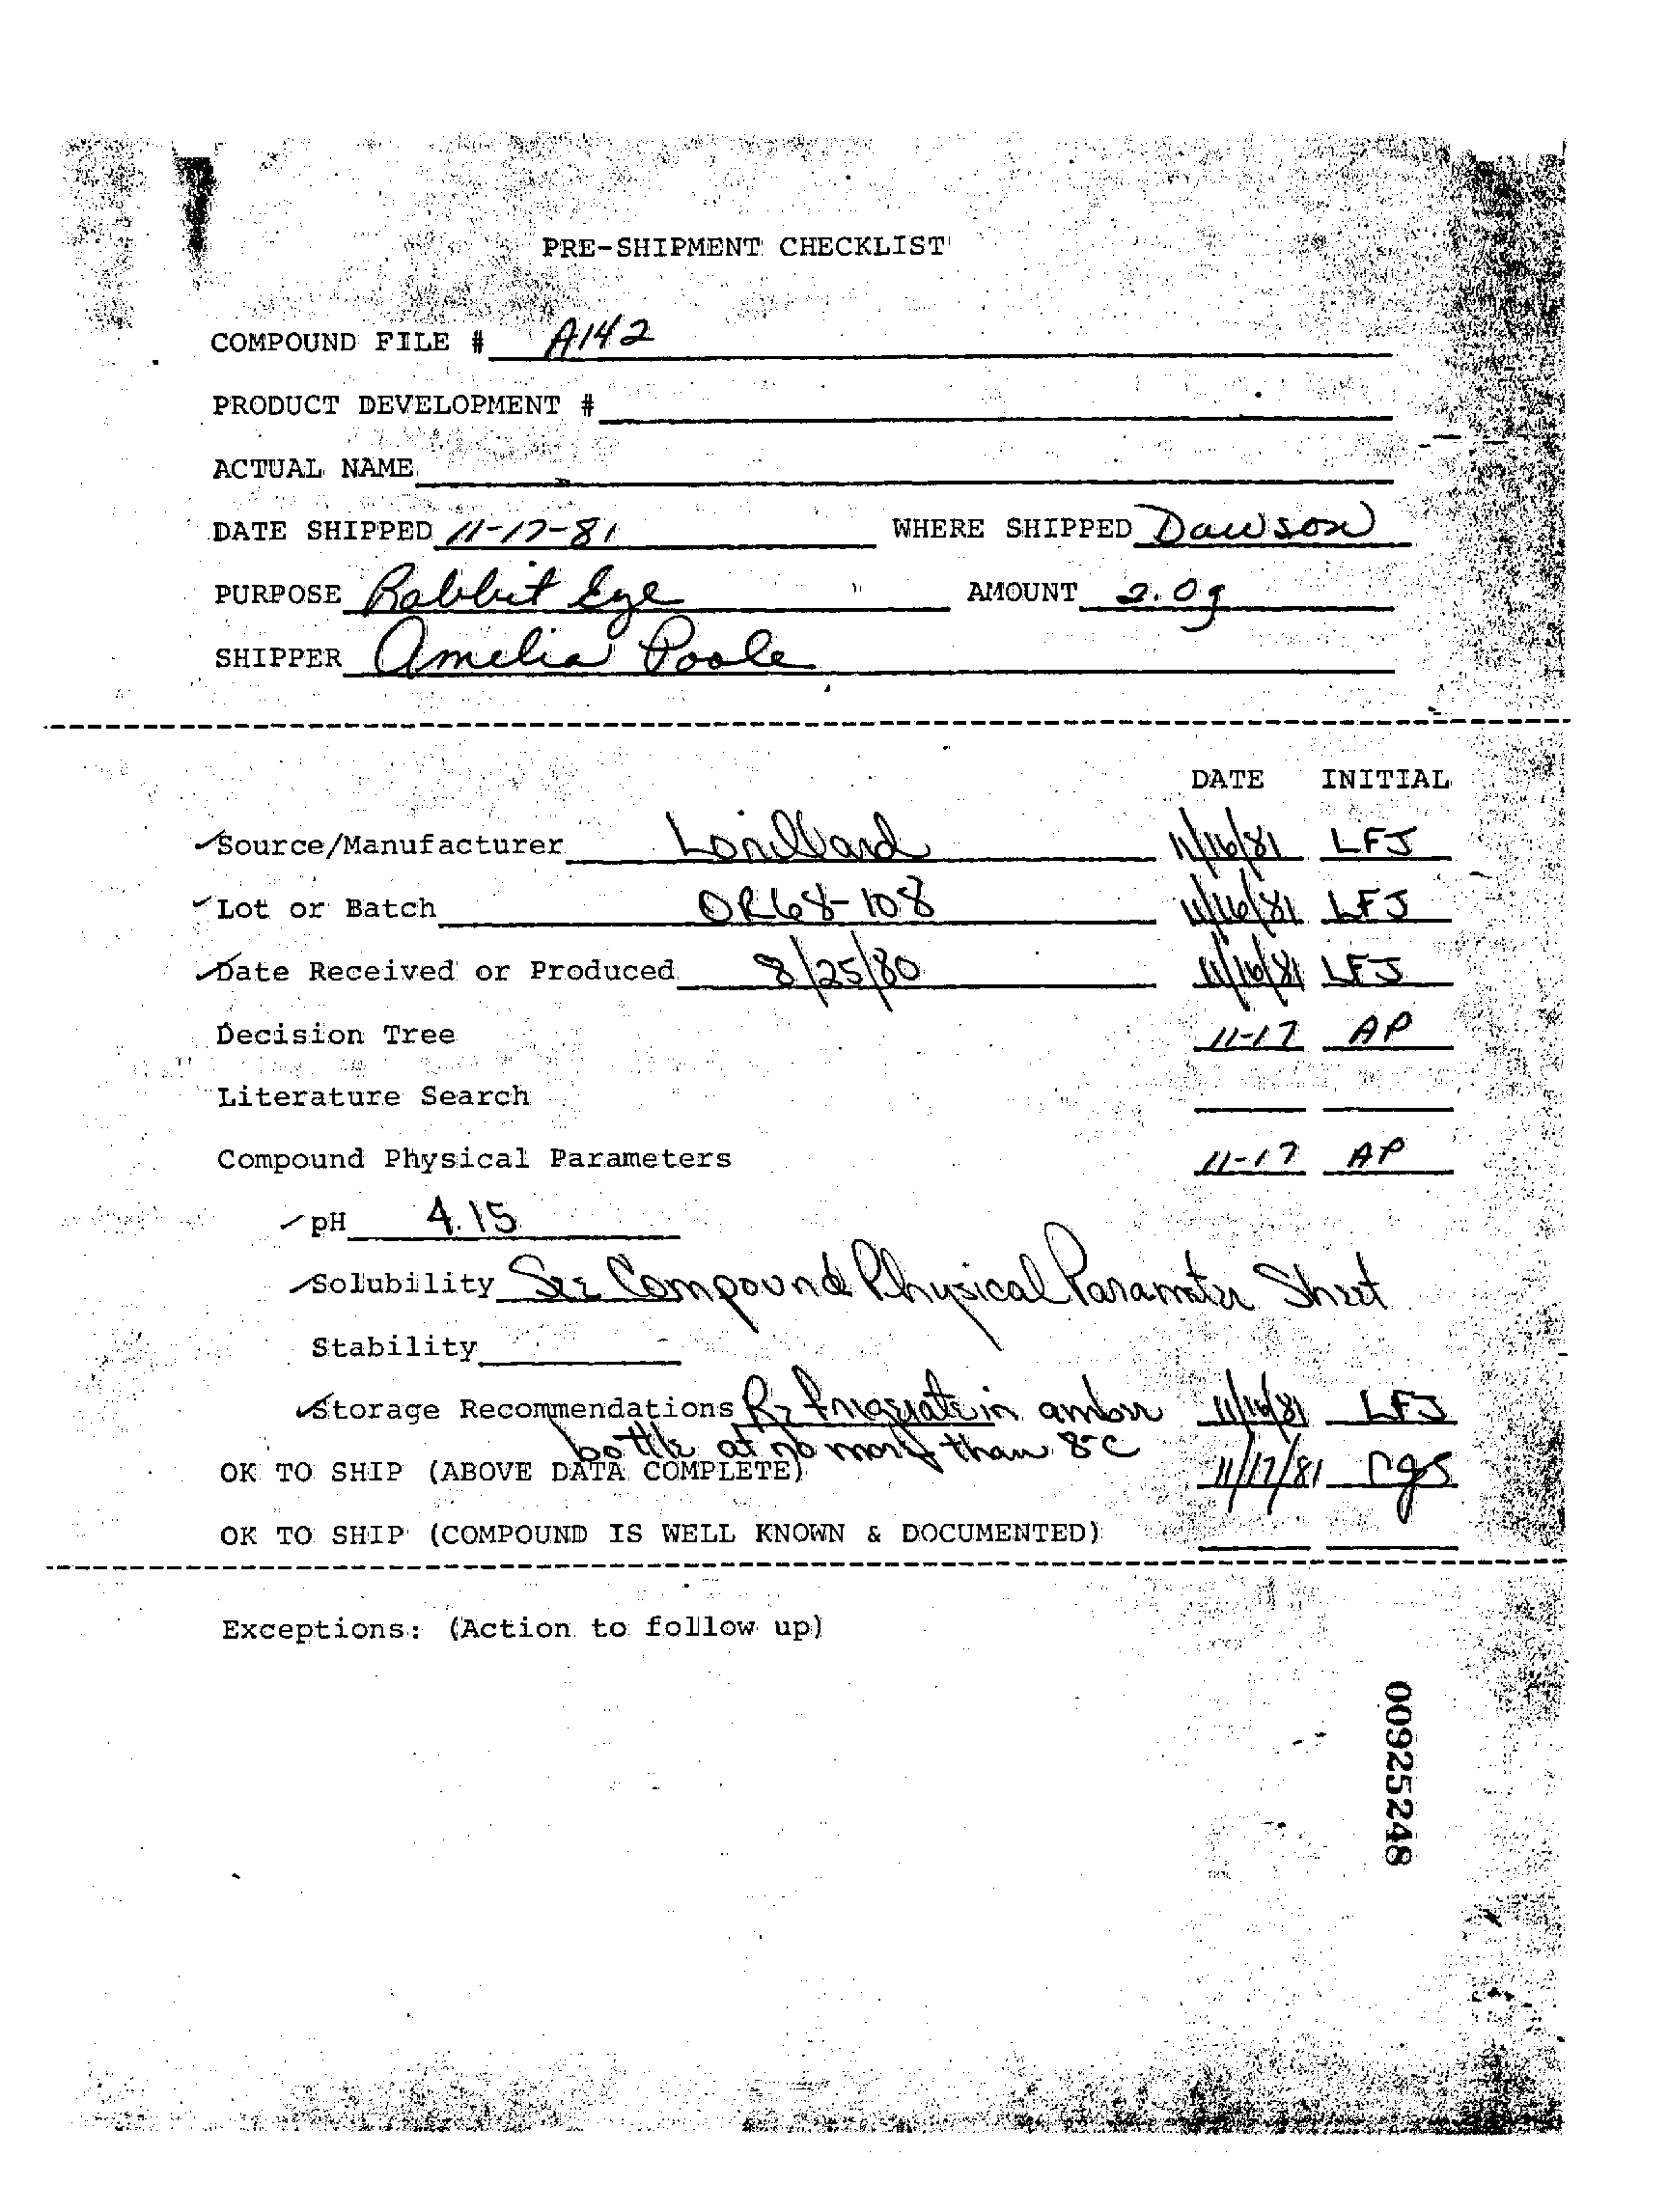 PRE-SHIPMENT CHECKLIST
COMPOUND FILE # A142
PRODUCT DEVELOPMENT #
ACTUAL NAME
DATE SHIPPED 11-17-81 WHERE SHIPPED Dawson
PURPOSE Rabbit Eye AMOUNT 2.0g
SHIPPER Amelia Poole
DATE INITIAL
✓Source/Manufacturer Lorillard 11/16/81 LFJ
✓Lot or Batch OR68-108 11/16/81 LFJ
✓Date Received or Produced 8/25/80 11/16/81 LFJ
Decision Tree 11-17 AP
Literature Search
Compound Physical Parameters 11-17 AP
✓pH 4.15
✓Solubility See Compound Physical Parameter Sheet
Stability
✓Storage Recommendations Refrigerate in amber 11/16/81 LFJ
bottle at no more than 8°C
OK TO SHIP (ABOVE DATA COMPLETE) 11/17/81
OK TO SHIP (COMPOUND IS WELL KNOWN & DOCUMENTED)
Exceptions: (Action to follow up)
00925248